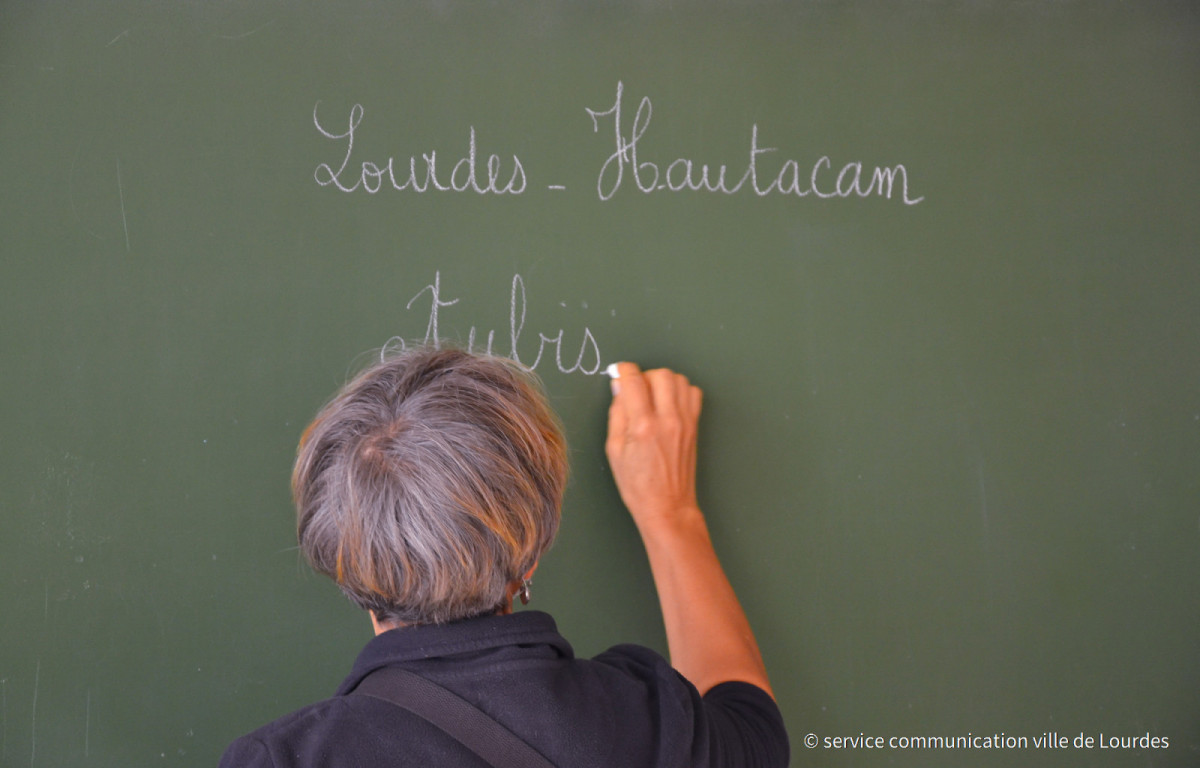 Lourdes - Hautacam
Aubis
© service communication ville de Lourdes